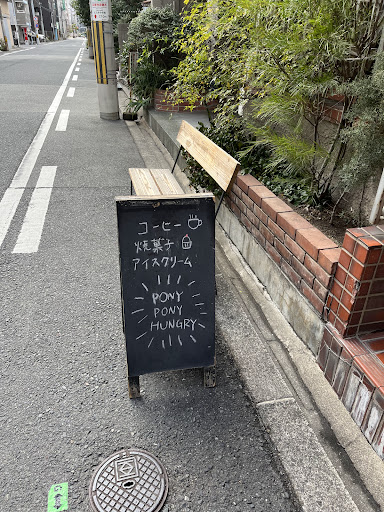 コーヒー
焼菓子
アイスクリーム
PONY
PONY
HUNGRY